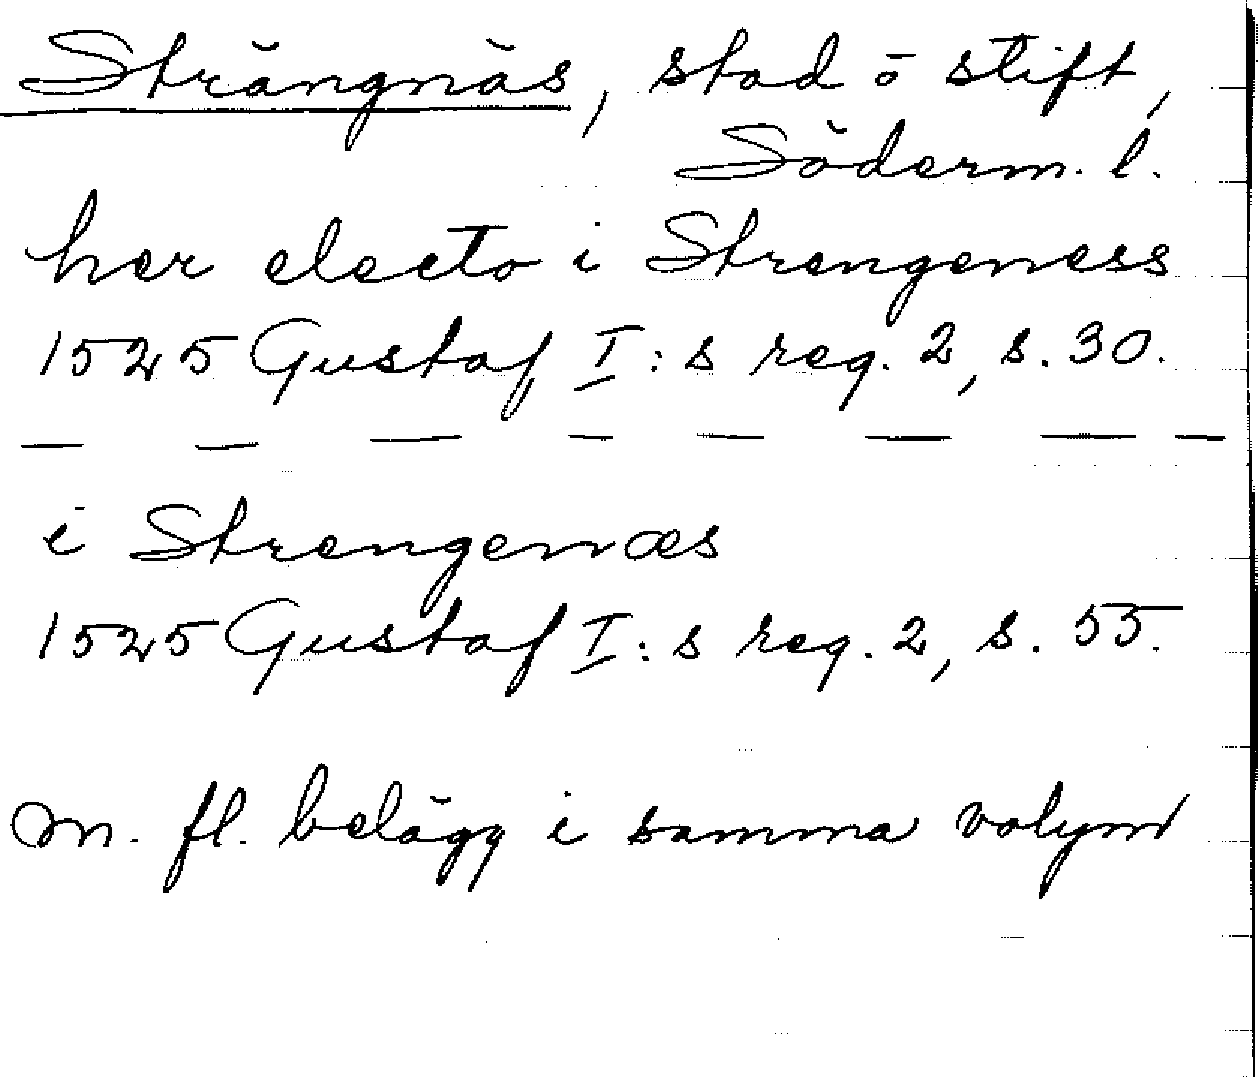 Strängnäs, stad ō stift,
Söderm. l.
her electo i Strengeness
1525 Gustaf I:s reg. 2, s. 30.
— — — — — — — —
i Strengenæs
1525 Gustaf I:s reg. 2, s. 55.
m. fl. belägg i samma volym